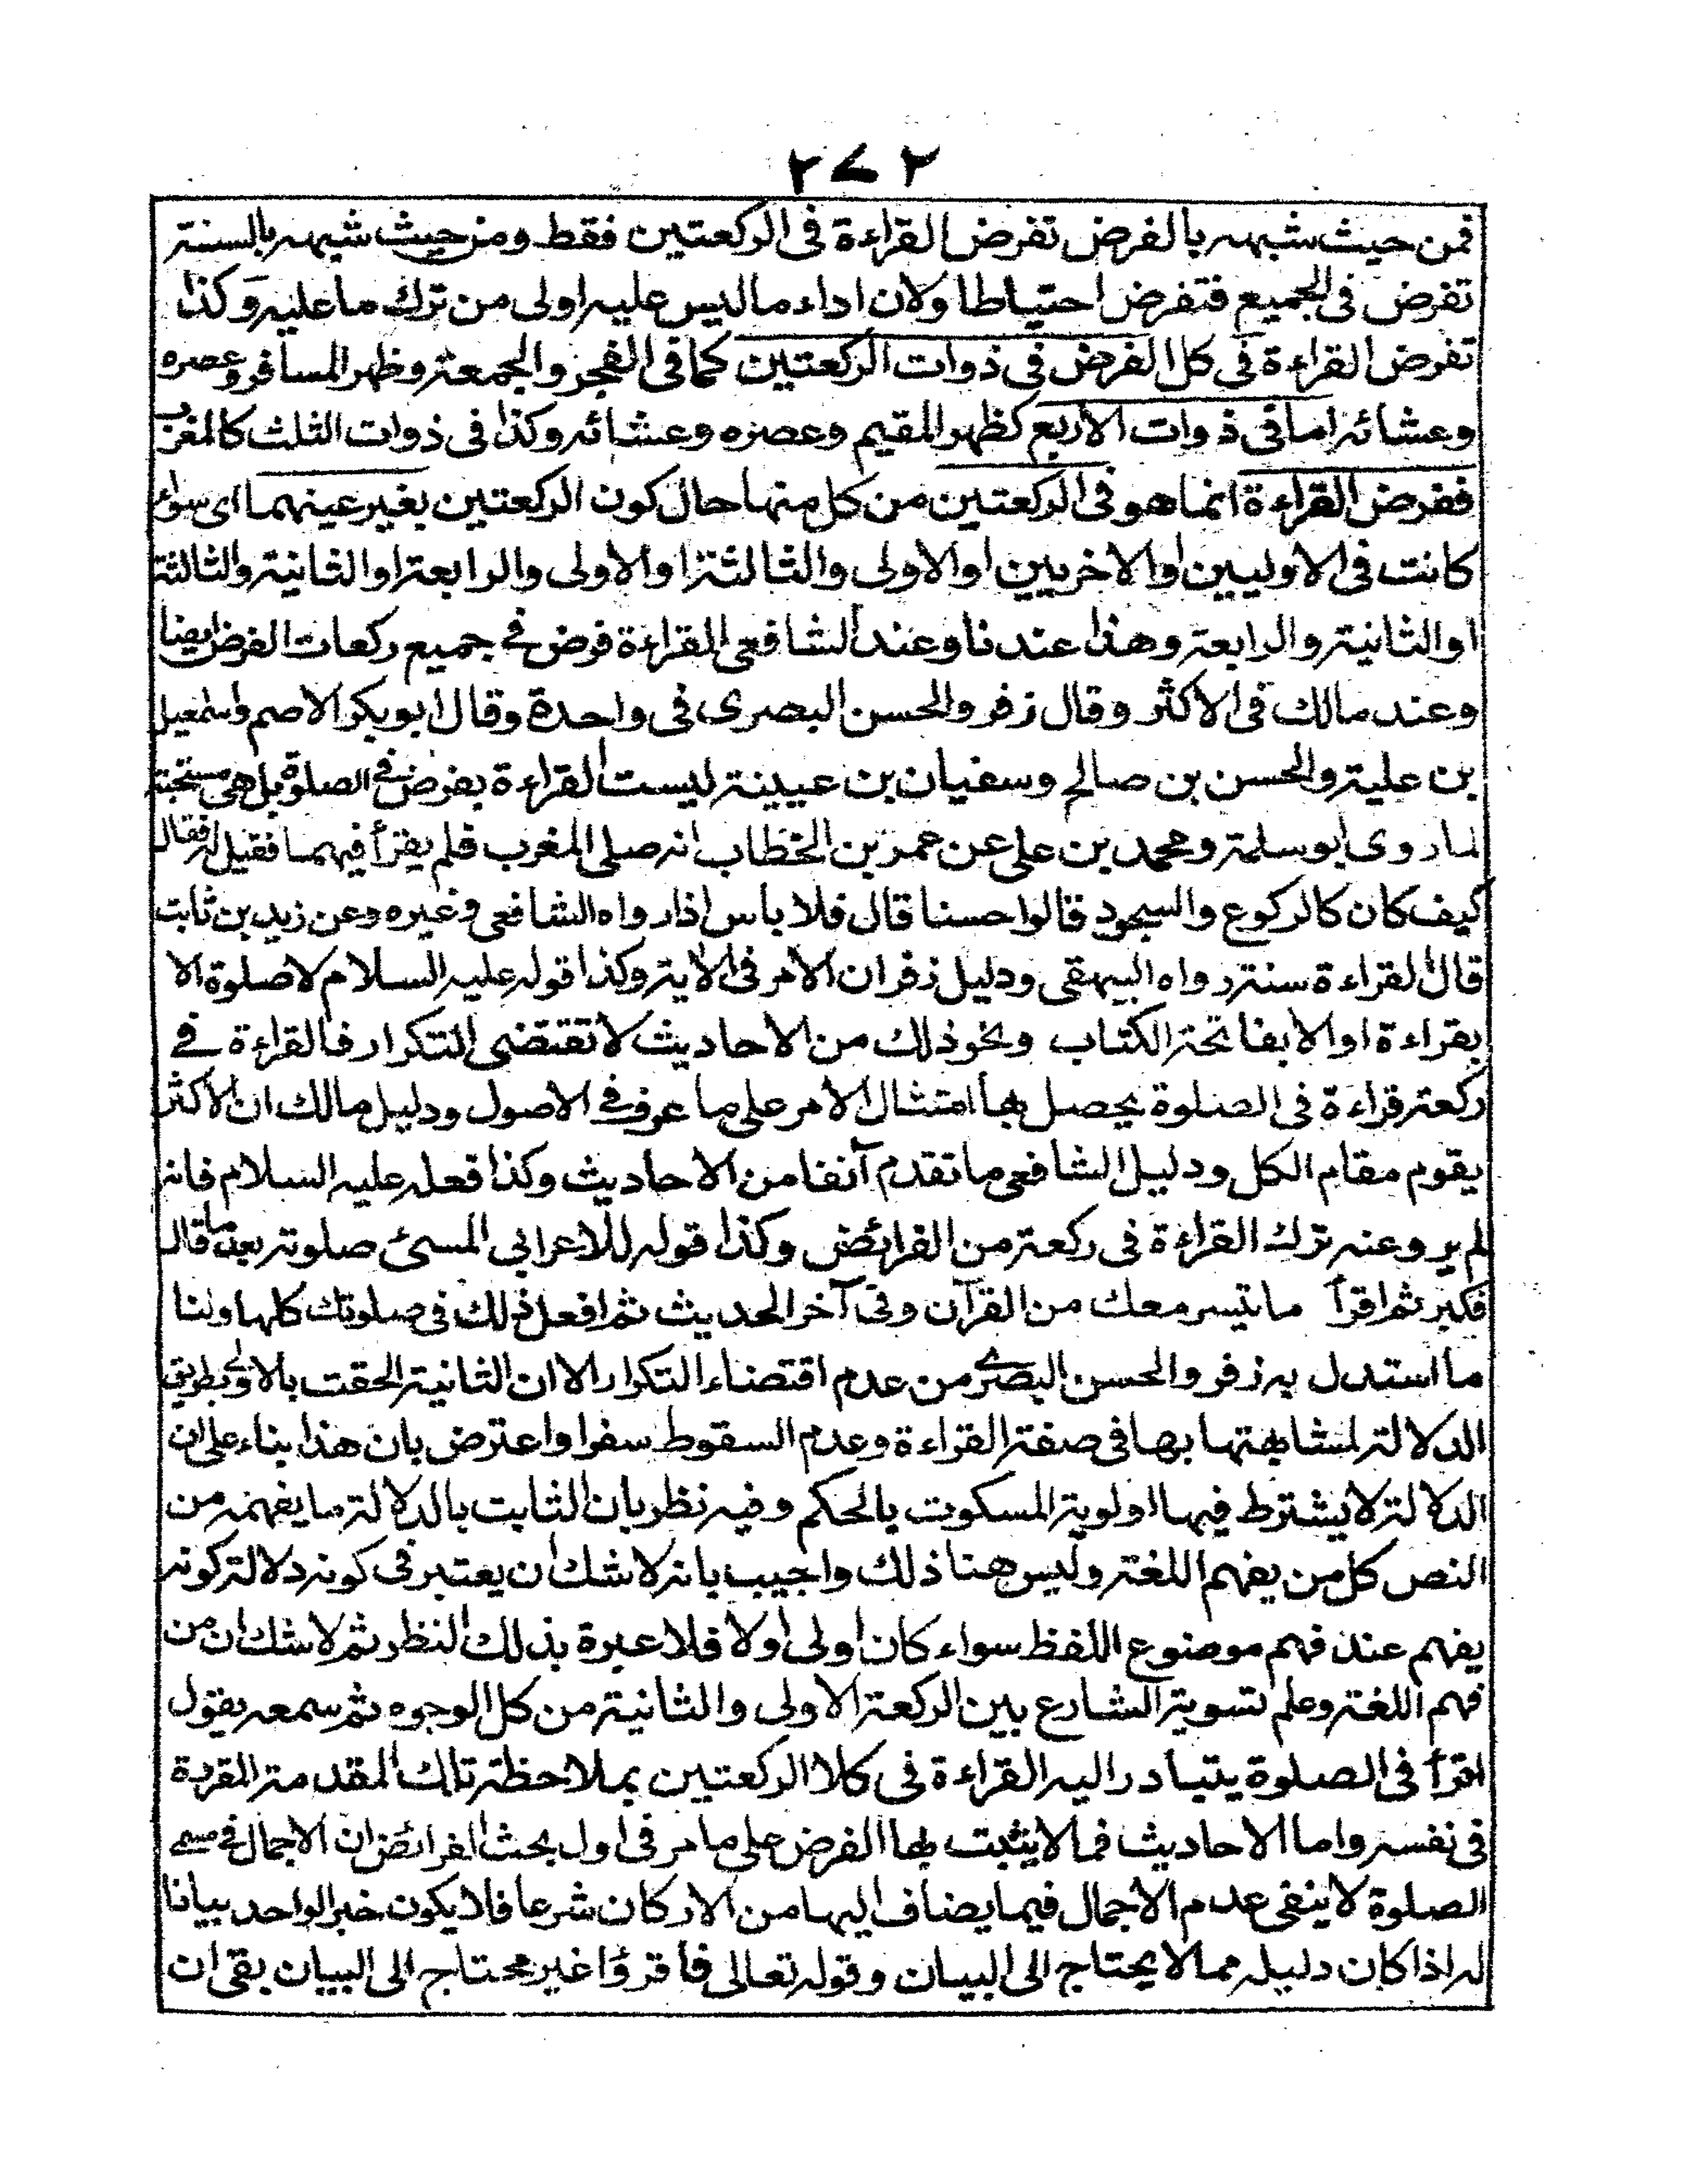 ٢٧٢
فمن حيث شبهه بالفرض تفرض القراءة فى الركعتين فقط ومن حيث شبهه بالسنة
تفرض فى الجميع فتفرض احتياطا ولان اداء ما ليس عليه اولى من ترك ما عليه وكذا
تفرض القراءة فى كل الفرض فى ذوات الركعتين كما فى الفجر والجمعة وظهر المسافر وعصره
وعشائه اما فى ذوات الأربع كظهر المقيم وعصره وعشائه وكذا فى ذوات الثلث كالمغرب
ففرض القراءة انما هو فى الركعتين من كل منها حال كون الركعتين بغير عينهما اى سواء
كانت فى الاوليين او الاخريين او الاولى والثالثة او الاولى والرابعة او الثانية والثالثة
او الثانية والرابعة وهذا عندنا وعند الشافعى القراءة فرض فى جميع ركعات الفرض ايضا
وعند مالك فى الاكثر وقال زفر والحسن البصرى فى واحدة وقال ابو بكر الاصم واسمعيل
بن علية والحسن بن صالح وسفيان بن عيينة ليست القراءة بفرض فى الصلوة بل هى مستحبة
لما روى ابو سلمة ومحمد بن على عن عمر بن الخطاب انه صلى المغرب فلم يقرأ فيهما فقيل له فقال
كيف كان كالركوع والسجود قالوا حسنا قال فلا باس اذا رواه الشافعى وغيره وعن زيد بن ثابت
قال القراءة سنة رواه البيهقى ودليل زفر ان الامر فى الاية وكذا قوله عليه السلام لا صلوة الا
بقراءة او الا بفاتحة الكتاب ونحو ذلك من الاحاديث لا تقتضى التكرار فالقراءة فى
ركعة قراءة فى الصلوة يحصل بها امتثال الامر على ما عرف فى الاصول ودليل مالك ان الاكثر
يقوم مقام الكل ودليل الشافعى ما تقدم آنفا من الاحاديث وكذا فعله عليه السلام فانه
لم يرو عنه ترك القراءة فى ركعة من الفرائض وكذا قوله للاعرابى المسئ صلوته بعد ما قال
فكبر ثم اقرأ ما تيسر معك من القرآن وفى آخر الحديث ثم افعل ذلك فى صلوتك كلها ولنا
ما استدل به زفر والحسن البصرى من عدم اقتضاء التكرار الا ان الثانية الحقت بالاولى بطريق
الدلالة لمشابهتها بها فى صفة القراءة وعدم السقوط سفرا واعترض بان هذا بناء على ان
الدلالة لا يشترط فيها اولوية المسكوت بالحكم وفيه نظر بان الثابت بالدلالة ما يفهمه من
النص كل من يفهم اللغة وليس هنا ذلك واجيب بانه لا شك ان يعتبر فى كونه دلالة كونه
يفهم عند فهم موضوع اللفظ سواء كان اولى اولا فلا عبرة بذلك النظر ثم لا شك ان من
فهم اللغة وعلم تسوية الشارع بين الركعة الاولى والثانية من كل الوجوه ثم سمعه يقول
اقرأ فى الصلوة يتبادر اليه القراءة فى كلا الركعتين بملاحظة تلك المقدمة المقررة
فى نفسه واما الاحاديث فما لا يثبت بها الفرض على ما مر فى اول بحث الفرائض ان الاجمال فى مسمى
الصلوة لا ينفى عدم الاجمال فيما يضاف اليها من الاركان شرعا فلا يكون خبر الواحد بيانا
له اذا كان دليله مما لا يحتاج الى البيان وقوله تعالى فاقرؤا غير محتاج الى البيان بقى ان